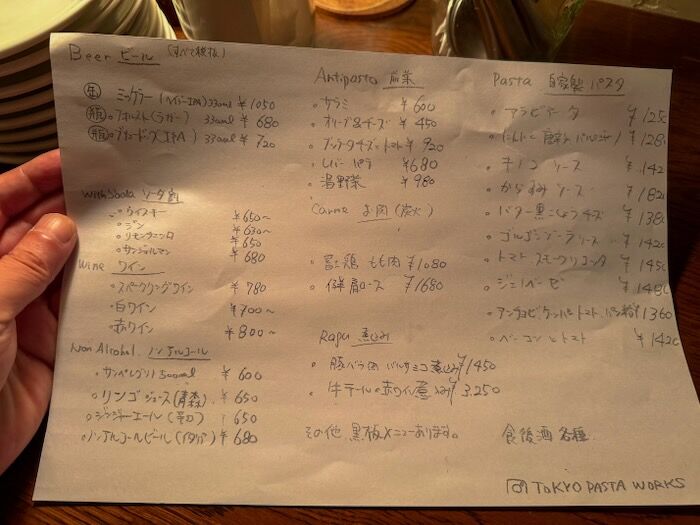 Beer ビール (すべて税抜)
缶 ミッケラー (IPA) 330ml ¥1050
瓶 (ラガー) 330ml ¥680
瓶 IPA 330ml ¥720
with Soda ソーダ割
・ウイスキー ¥650~
・ジン ¥630~
・リモンチェッロ ¥650
¥680
Wine ワイン
・スパークリングワイン ¥780
・白ワイン ¥700~
・赤ワイン ¥800~
Non Alcohol ノンアルコール
・サンペレグリノ 500ml ¥600
・リンゴジュース(青森) ¥650
・ジンジャーエール(辛口) ¥650
・ノンアルコールビール(イタリア) ¥680
Antipasto 前菜
・サラミ ¥600
・オリーブ&チーズ ¥450
・ブッラータチーズとトマト ¥920
・レバーパテ ¥680
・温野菜 ¥980
Carne お肉(炭火)
・富士鶏 もも肉 ¥1080
・豚肩ロース ¥1680
Ragu 煮込み
・豚バラ肉 バルサミコ煮込み ¥1450
・牛テールの赤ワイン煮込み ¥3,250
その他 黒板メニューあります。
Pasta 自家製パスタ
・アラビアータ ¥125
・にんにく 唐辛子 ¥128
・キノコ ソース ¥142
・からすみ ソース ¥182
・バター黒こしょうチーズ ¥138
・ゴルゴンゾーラソース ¥142
・トマト スモークリコッタ ¥145
・ジェノベーゼ ¥148
・アンチョビケッパー トマト パン粉 ¥1360
・ベーコンとトマト ¥142
食後酒 各種
TOKYO PASTA WORKS